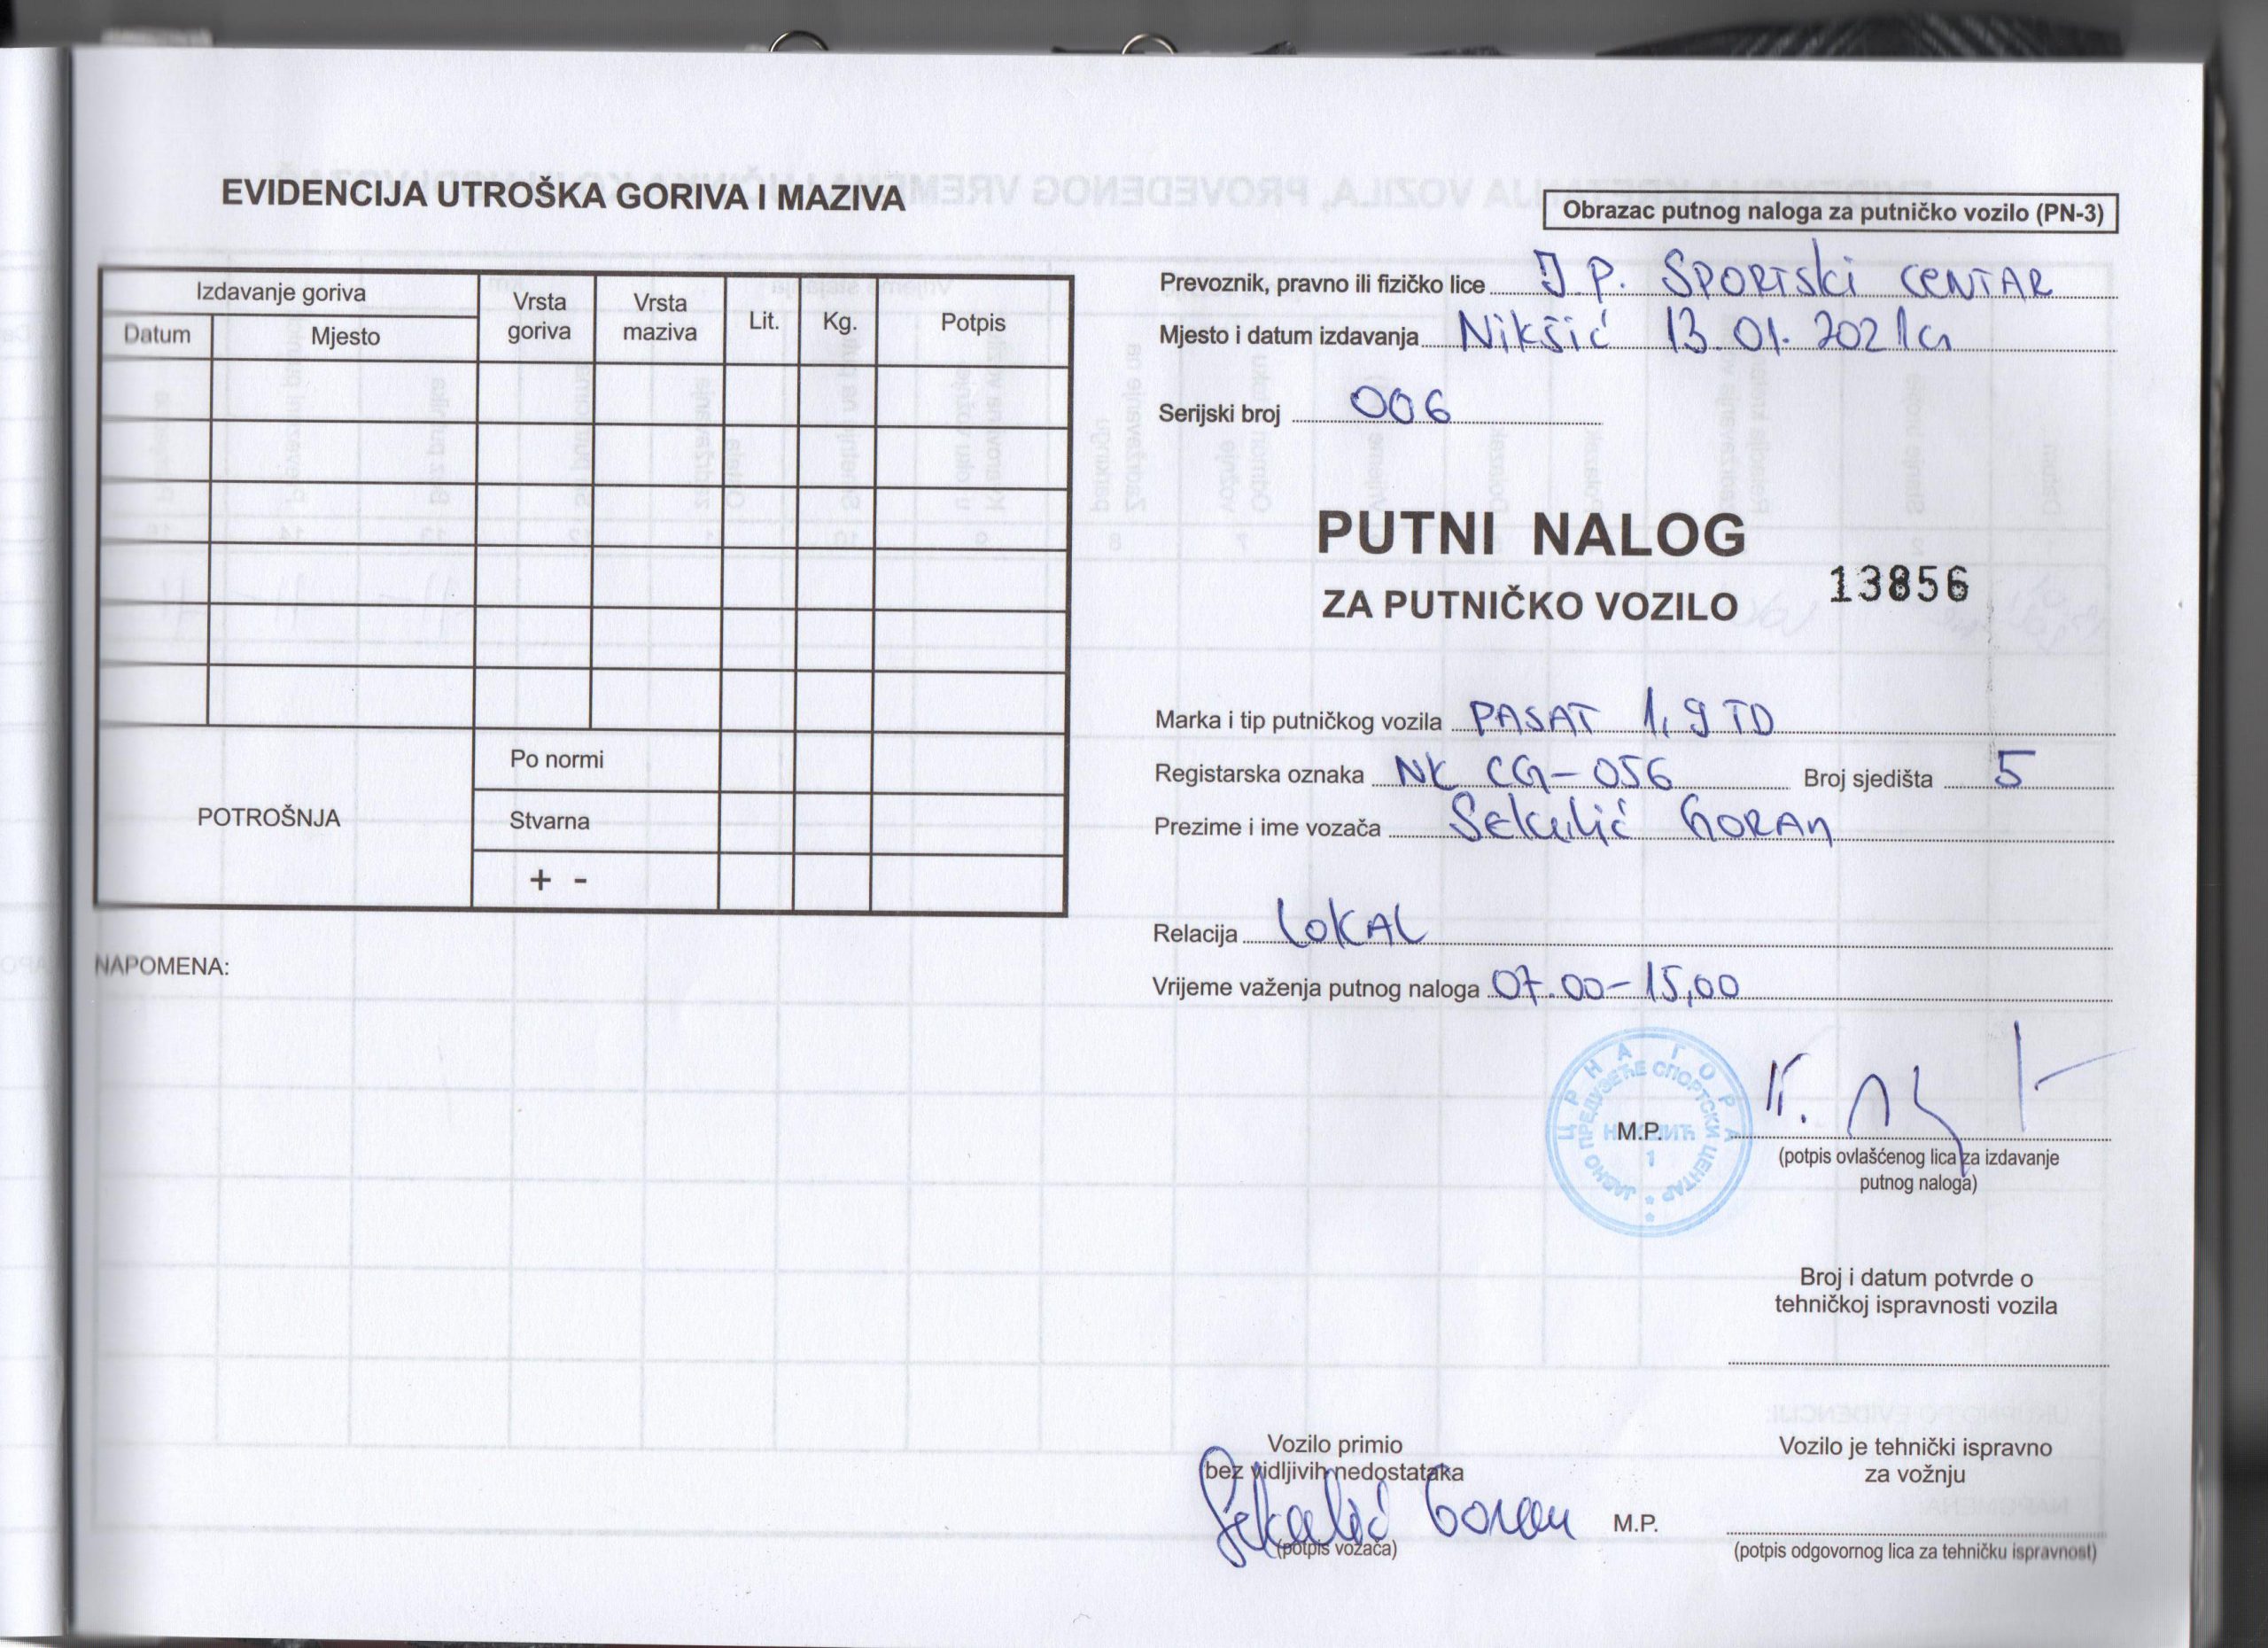 EVIDENCIJA UTROŠKA GORIVA I MAZIVA
Izdavanje goriva
Datum
Mjesto
Vrsta goriva
Vrsta maziva
Lit.
Kg.
Potpis
POTROŠNJA
Po normi
Stvarna
+ -
NAPOMENA:
Obrazac putnog naloga za putničko vozilo (PN-3)
Prevoznik, pravno ili fizičko lice J.P. SPORTSKI CENTAR
Mjesto i datum izdavanja Nikšić 13.01.2021G
Serijski broj 006
PUTNI NALOG
ZA PUTNIČKO VOZILO 13856
Marka i tip putničkog vozila PASAT 1,9 TD
Registarska oznaka NK CG-056 Broj sjedišta 5
Prezime i ime vozača Sekulić GORAN
Relacija LOKAL
Vrijeme važenja putnog naloga 07.00-15,00
ЦРНА ГОРА
ЈАВНО ПРЕДУЗЕЋЕ СПОРТСКИ ЦЕНТАР
НИКШИЋ
1
M.P.
(potpis ovlašćenog lica za izdavanje
putnog naloga)
Broj i datum potvrde o
tehničkoj ispravnosti vozila
Vozilo primio
bez vidljivih nedostataka
Sekulić Goran
(potpis vozača)
M.P.
Vozilo je tehnički ispravno
za vožnju
(potpis odgovornog lica za tehničku ispravnost)